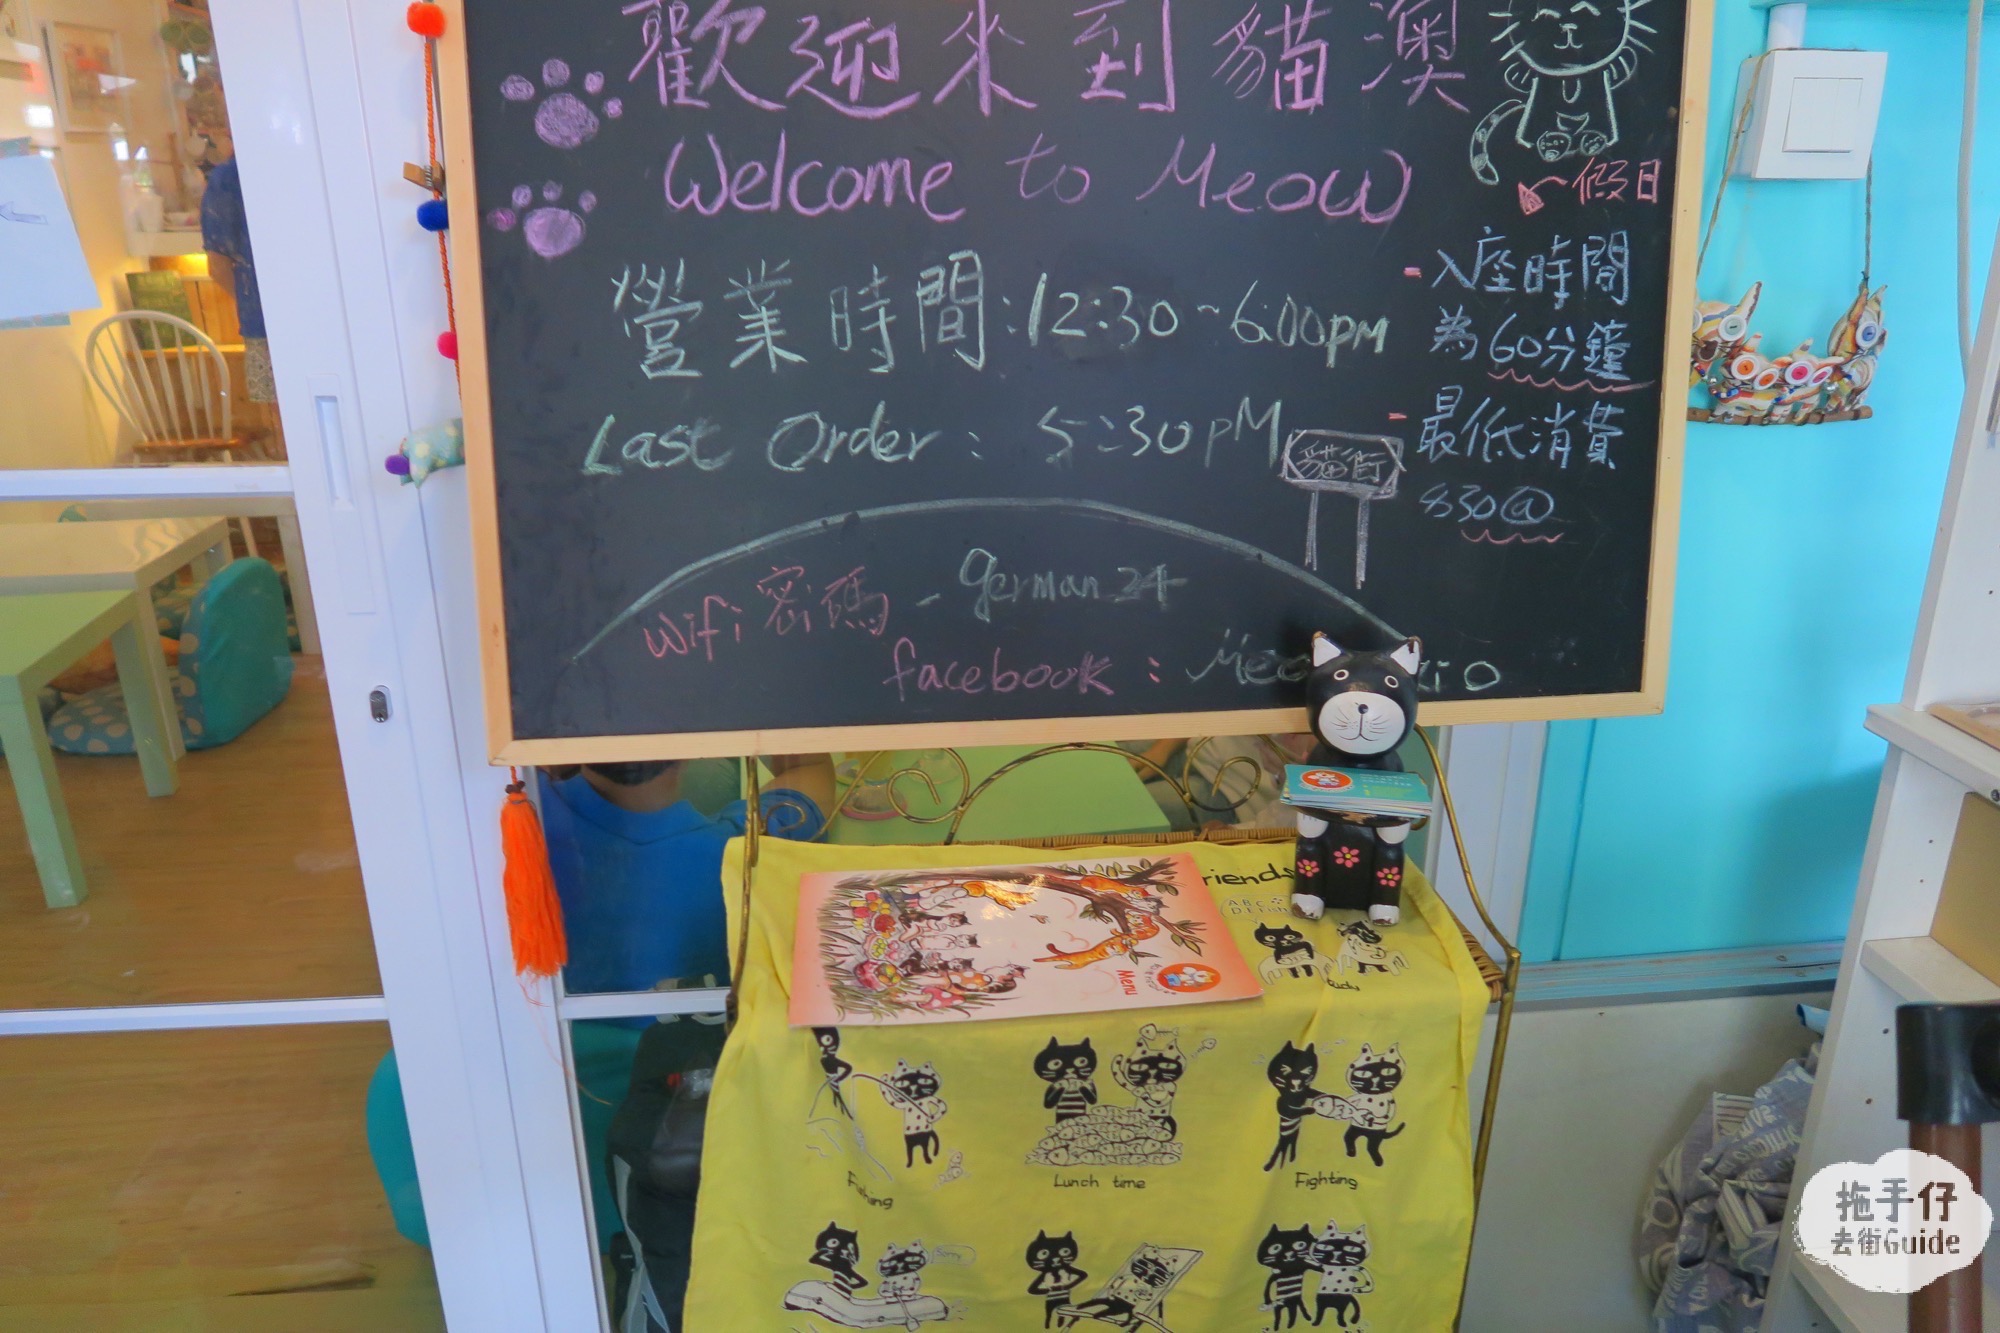 歡迎來到貓澳
Welcome to Meow
假日
營業時間：12:30~6:00pm
- 入座時間
為60分鐘
Last Order : 5:30pM
- 最低消費
$30@
貓街
wifi 密碼 - german24
facebook :
Menu
riends
Fishing
Lunch time
Fighting
Sorry
拖手仔
去街Guide